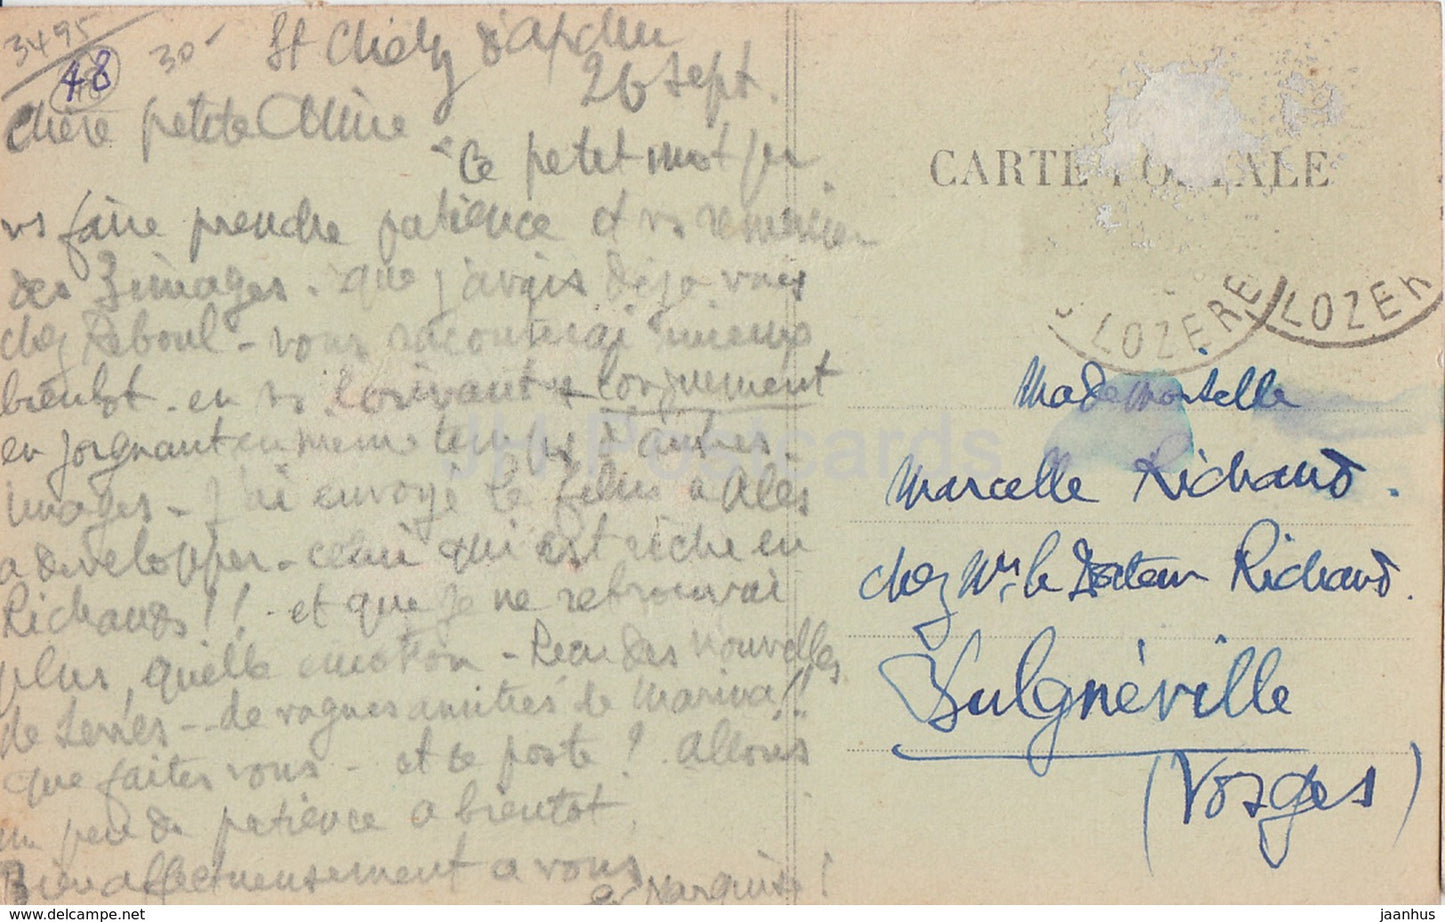 3495
48
30-
St Chely d'Apcher
26 Sept.
Chère petite Mine
Ce petit mot pr
vs faire prendre patience et vs remercier
des 3 images. que j'avais deja vues
chez Reboul - vous raconterai mieux
bientot. en vs écrivant + longuement
en joignant en meme temps d'autres
images - j'ai envoyé le film a Ales
a developper - celui qui est riche en
Richauds !! et que je ne retrouvai
plus, quelle emotion - Recu des nouvelles
de Serres - de vagues amitiés de Marina !!
que faites vous - et ce poste ? allons
un peu de patience a bientot,
Bien affectueusement a vous
CARTE POSTALE
LOZERE
LOZER
Mademoiselle
Marcelle Richaud.
chez Mr. le Docteur Richaud.
Bulgnéville
(Vosges)
JH Postcards
delcampe.net
jaanhus